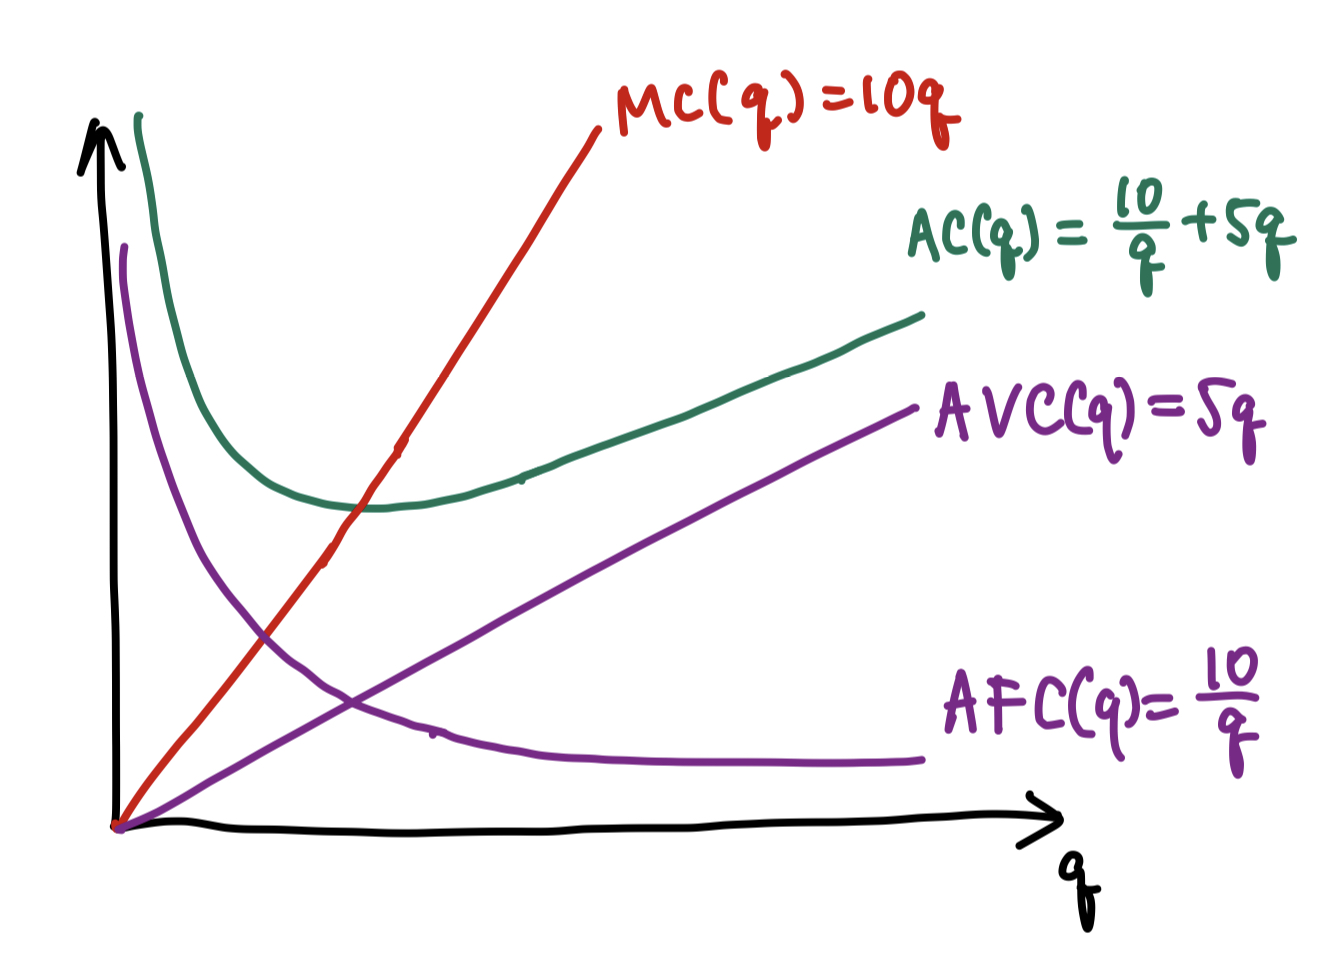 MC(q) = 10q
AC(q) = 10/q + 5q
AVC(q) = 5q
AFC(q) = 10/q
q